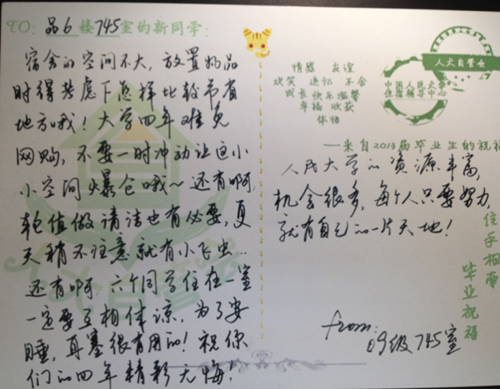 TO: 品6楼745室的新同学:
宿舍的空间不大，放置物品
时得考虑下怎样比较节省
地方哦！大学四年难免
网购，不要一时冲动让这小
小空间爆仓哦~还有啊,
轮值做清洁也有必要,夏
天稍不注意就有小飞虫...
还有啊 六个同学住在一室
一定要互相体谅，为了安
睡，耳塞很有用的！祝你
们的四年精彩无悔！
情感 友谊
欢笑 追忆 不舍
成长 快乐 温馨
幸福 收获
体悟
人文自管会
中国人民大学
——来自2013届毕业生的祝福
人民大学的资源丰富,
机会很多,每个人只要努力,
就有自己的一片天地！
毕业祝福
from:
09级745室